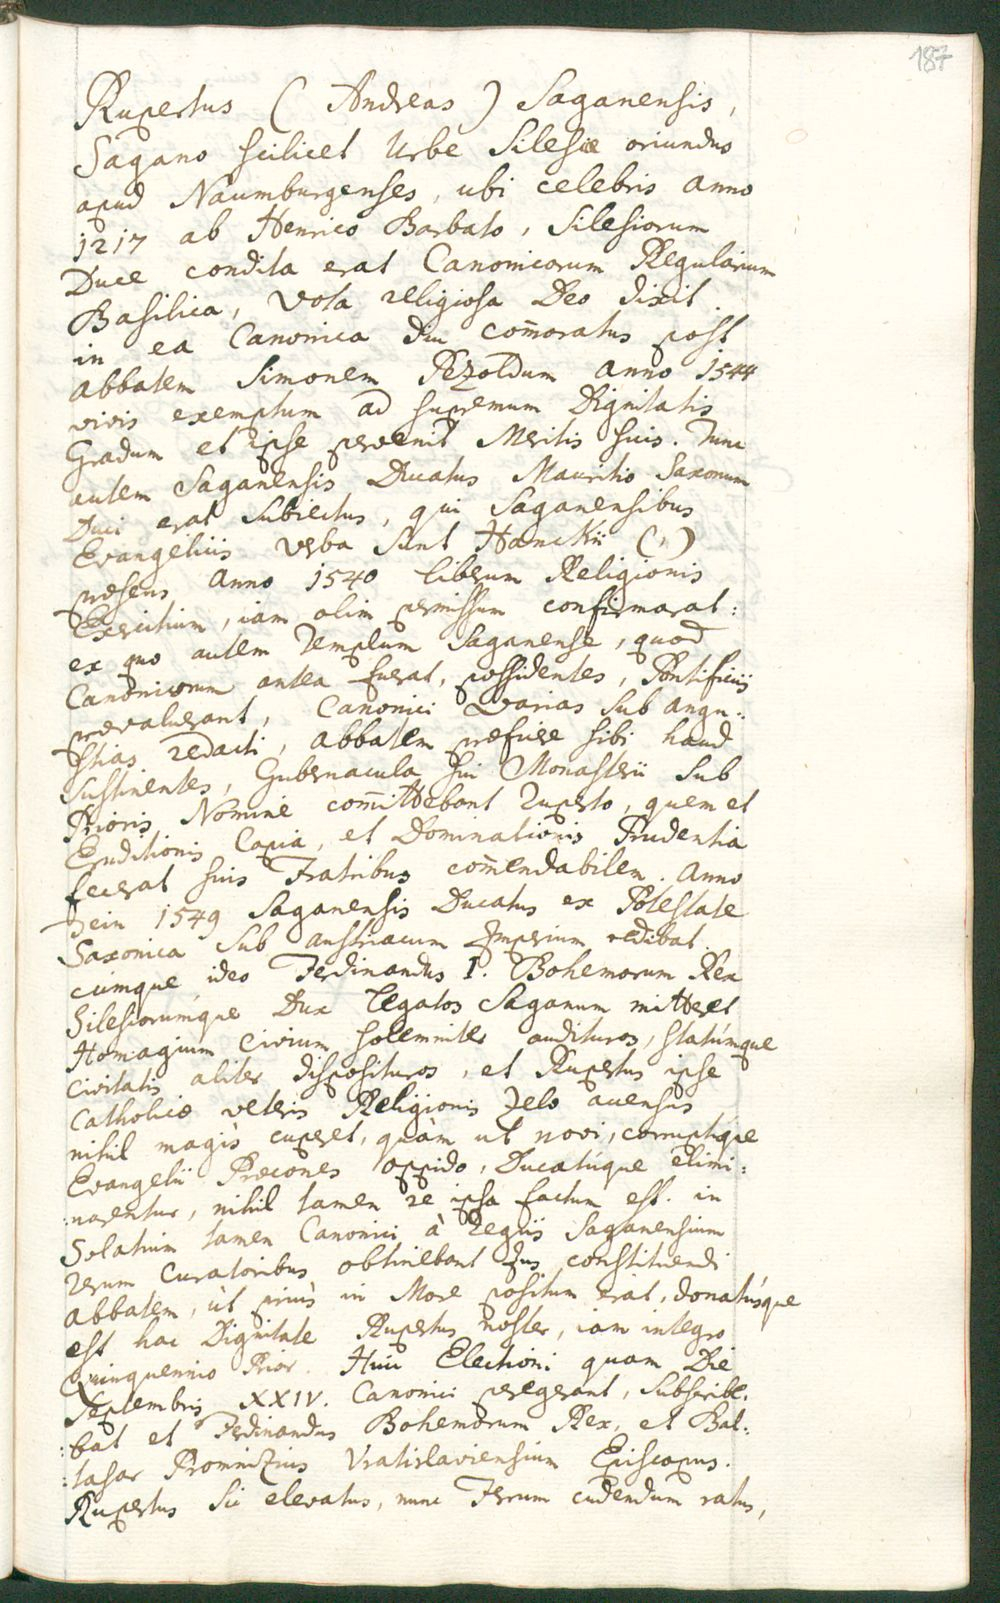 187
Rupertus ( Andreas ) Saganensis,
Sagano scilicet Urbe Silesiæ oriundus
apud Naumburgenses, ubi celebris anno
1217 ab Henrico Barbato, Silesiorum
Duce condita erat Canonicorum Regularium
Basilica, Vota religiosa Deo dixit.
in ea Canonica diu com̄oratus post
abbatem Simonem Pezoldum anno 1544
vivis exemptum ad supremum Dignitatis
Gradum et ipse pervenit Meritis suis. Tunc
autem Saganensis Ducatus Mauritio Saxonum
Duci erat subiectus, qui Saganensibus
Evangeliis verba sunt Hanckii (1)
præsens anno 1540 liberum Religionis
Exercitium, iam olim permissum confirmarat:
ex quo autem Templum Saganense, quod
Canonicorum antea fuerat, possidentes, Pontificiis
prævaluerant, Canonici varias sub angu:
stias redacti, abbatem præfuisse sibi haud
sustinentes, Gubernacula sui Monasterii sub
Prioris Nomine com̄ittebant Ruperto, quem et
Eruditionis Copia, et Dominationis Prudentia
fecerat suis Fratribus com̄endabilem. Anno
dein 1549 Saganensis Ducatus ex Potestate
Saxonica sub austriacum Imperium redibat.
cúmque ideo Ferdinandus I. Bohemorum Rex
Silesiorúmque Dux Legatos Saganum mitteret
Homagium Civium solemniter audituros, statúmque
Civitatis aliter disposituros, et Rupertus ipse
Catholicæ veteris Religionis zelo accensus
nihil magis cuperet, quàm ut novi, corruptíque
Evangelii Præcones oppido, Ducatúque elimi:
:narentur, nihil tamen re ipsa factum est. in
Solatium tamen Canonici à Regiis Saganensium
rerum Curatoribus obtinebant Jus constituendi
abbatem, ùt priùs in More positum erat, donatúsque
est hac Dignitate Rupertus noster, iam integro
Quinquennio Prior. Huic Electioni quam Die
Septembris XXIV. Canonici peregerant, subscribe:
:bat et Ferdinandus Bohemorum Rex, et Bal:
:tasar Promnizius Vratislaviensium Episcopus.
Rupertus sic elevatus, nunc Ferrum cudendum ratus,